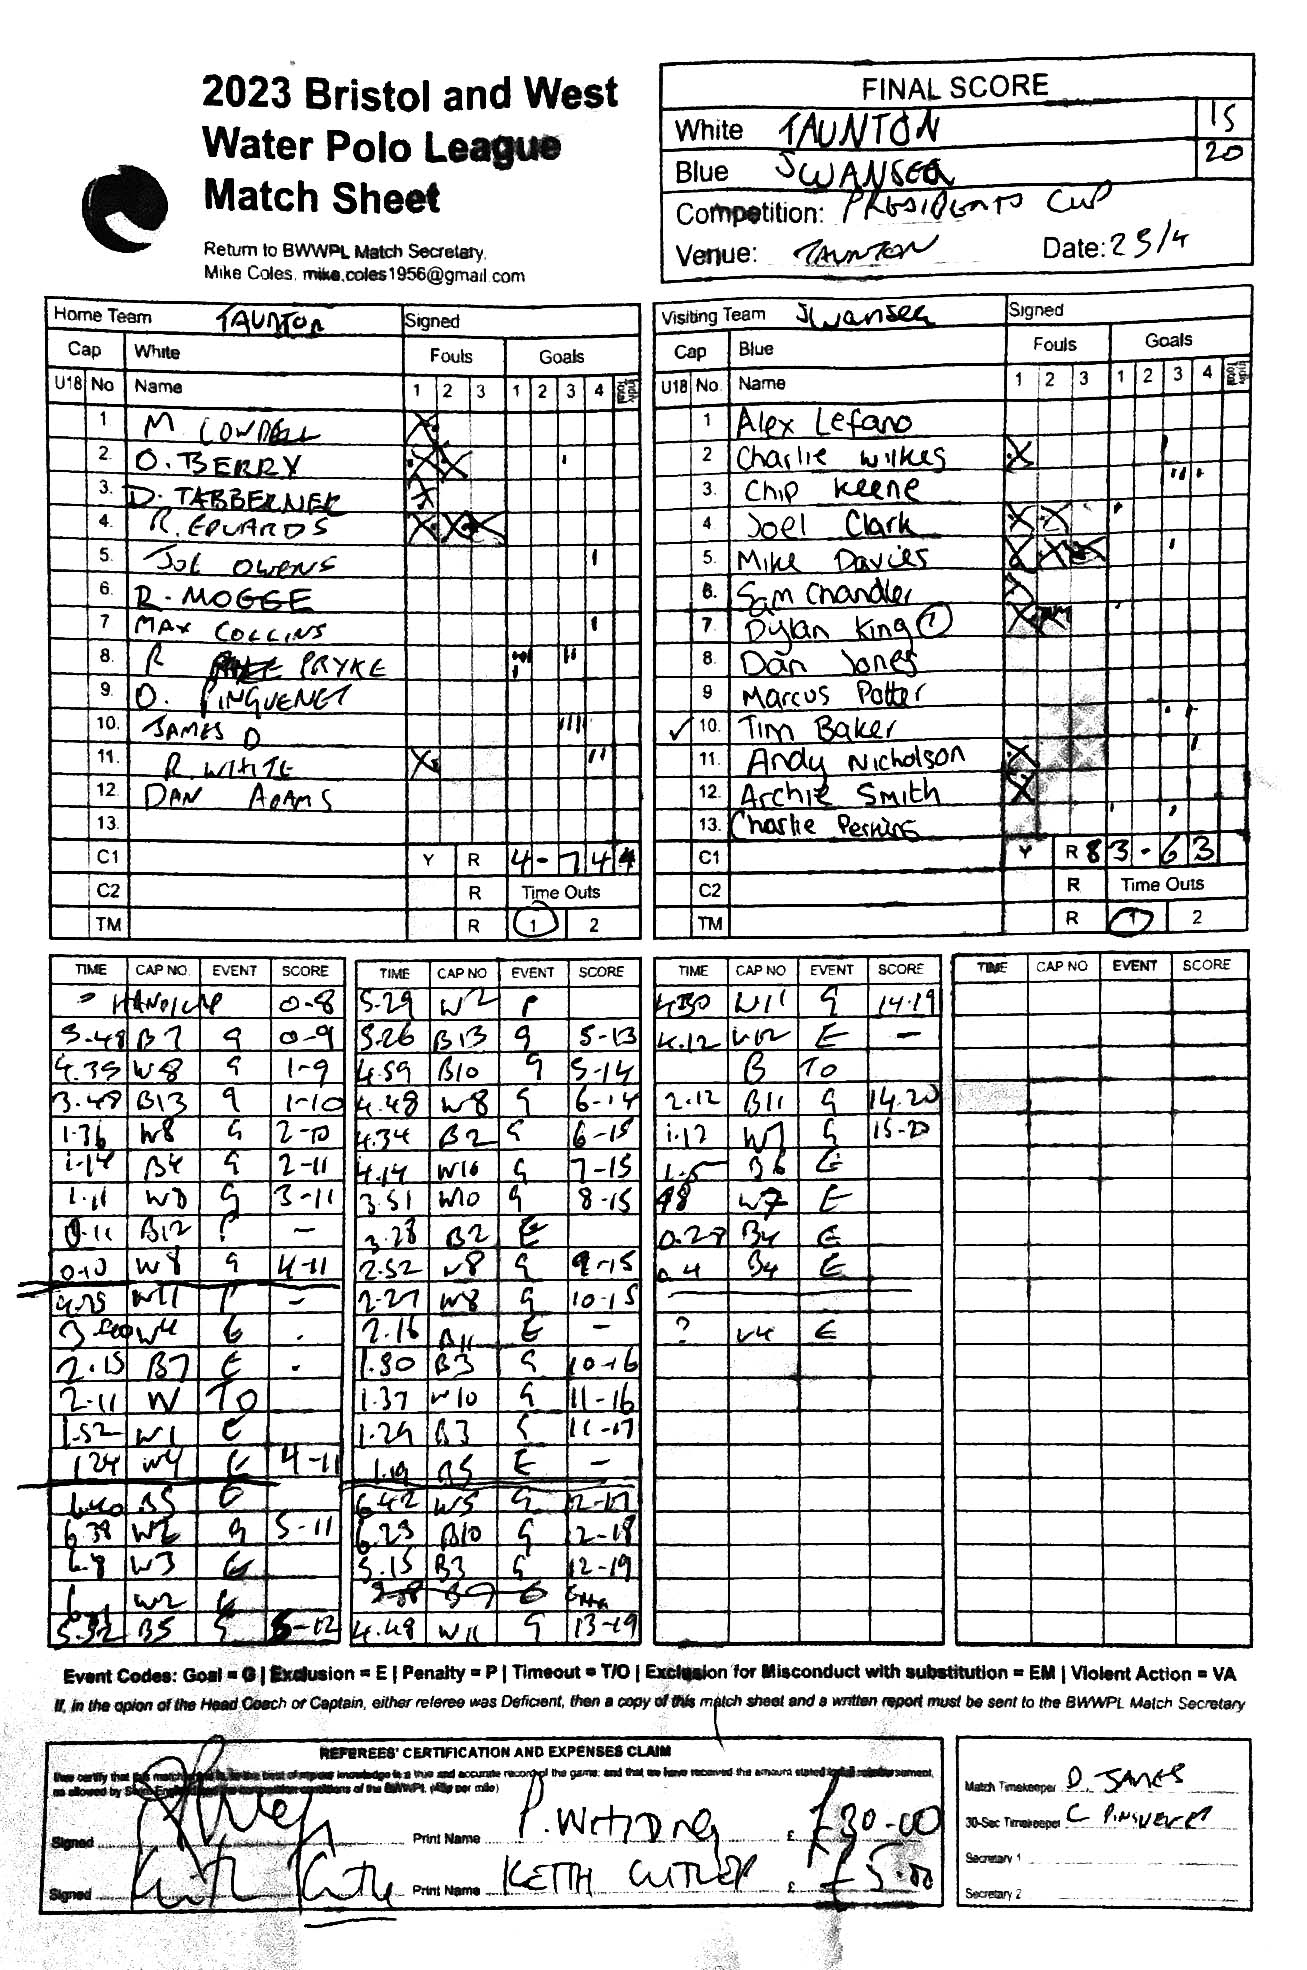 2023 Bristol and West
Water Polo League
Match Sheet
Return to BWWPL Match Secretary,
Mike Coles, mike.coles1956@gmail.com
FINAL SCORE
White TAUNTON 15
Blue SWANSEA 20
Competition: PRESIDENTS CUP
Venue: TAUNTON Date: 23/4
Home Team TAUNTON Signed
Cap White Fouls Goals
U18 No Name 1 2 3 1 2 3 4
1
2. O. BERRY
3. D. TABBERNER
4. R. EDWARDS
5. JOE OWENS
6. R. MOGGE
7 MAX COLLINS
8. R PRYKE
9. O. PINGUENET
10. JAMES D
11. R. WHITE
12 DAN ADAMS
13.
C1 Y R 4 - 7 4 4
C2 R Time Outs
TM R 1 2
Visiting Team Swansea Signed
Cap Blue Fouls Goals
U18 No. Name 1 2 3 1 2 3 4
1 Alex Lefano
2 Charlie Wilkes
3. Chip Keene
4 Joel Clark
5. Mike Davies
6. Sam Chandler
7. Dylan King 1
8. Dan Jones
9 Marcus Potter
10. Tim Baker
11. Andy Nicholson
12. Archie Smith
13. Charlie Perkins
C1 Y R 8 3 - 6 3
C2 R Time Outs
TM R 1 2
TIME CAP NO. EVENT SCORE
HANDICAP 0-8
5.48 B7 G 0-9
4.39 W8 G 1-9
3.48 B13 G 1-10
1.36 W8 G 2-10
1.14 B4 G 2-11
1.11 W8 G 3-11
0.11 B12 P -
0.10 W8 G 4-11
4.25 W11 P -
W4 E
2.15 B7 E
2-11 W TO
1.52 W1 E
1.24 W4 E 4-11
6.40 B5 E
6.38 W2 G 5-11
6.8 W3 E
W2 E
5.32 B5 G 5-12
TIME CAP NO EVENT SCORE
5.29 W2 P
5.26 B13 G 5-13
4.59 B10 G 5-14
4.48 W8 G 6-14
4.34 B2 G 6-15
4.14 W10 G 7-15
3.51 W10 G 8-15
3.28 B2 E
2.52 W8 G 9-15
2.27 W8 G 10-15
2.16 B11 E -
1.50 B3 G 10-16
1.37 W10 G 11-16
1.29 B3 G 11-17
1.19 B5 E -
6.42 W5 G 12-17
6.23 B10 G 12-18
5.15 B3 G 12-19
4.48 W11 G 13-19
TIME CAP NO EVENT SCORE
4.30 W11 G 14-19
4.12 W12 E -
B TO
2.12 B11 G 14.20
1.12 W7 G 15-20
1.5 B6 E
48 W7 E
0.28 B4 E
0.4 B4 E
? W4 E
TIME CAP NO EVENT SCORE
Event Codes: Goal = G | Exclusion = E | Penalty = P | Timeout = T/O | Exclusion for Misconduct with substitution = EM | Violent Action = VA
If, in the opion of the Head Coach or Captain, either referee was Deficient, then a copy of this match sheet and a written report must be sent to the BWWPL Match Secretary
REFEREES' CERTIFICATION AND EXPENSES CLAIM
Signed Print Name £ £30-00
Signed Keith Cutler Print Name KEITH CUTLER £ £5.00
Match Timekeeper D. JAMES
30-Sec Timekeeper C PINGUENET
Secretary 1
Secretary 2